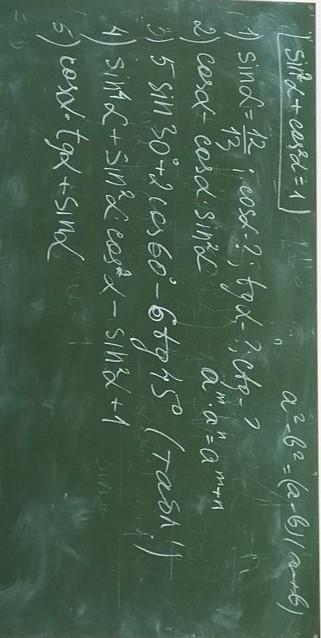 sin²α + cos²α = 1
a² - b² = (a - b)(a + b)
1) sinα = 12/13; cosα - ?; tgα - ?; ctg - ?
2) cosα - cosα · sin²α
aᵐ aⁿ = aᵐ⁺ⁿ
3) 5 sin 30° + 2 cos 60° - 6 tg 45° (табл.!)
4) sin⁴α + sin²α cos²α - sin²α + 1
5) cosα · tgα + sinα